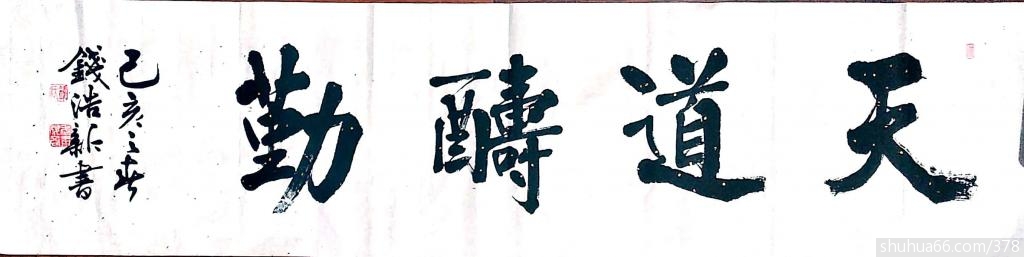 天道酬勤
己亥之春
錢浩新書
shuhua66.com/378